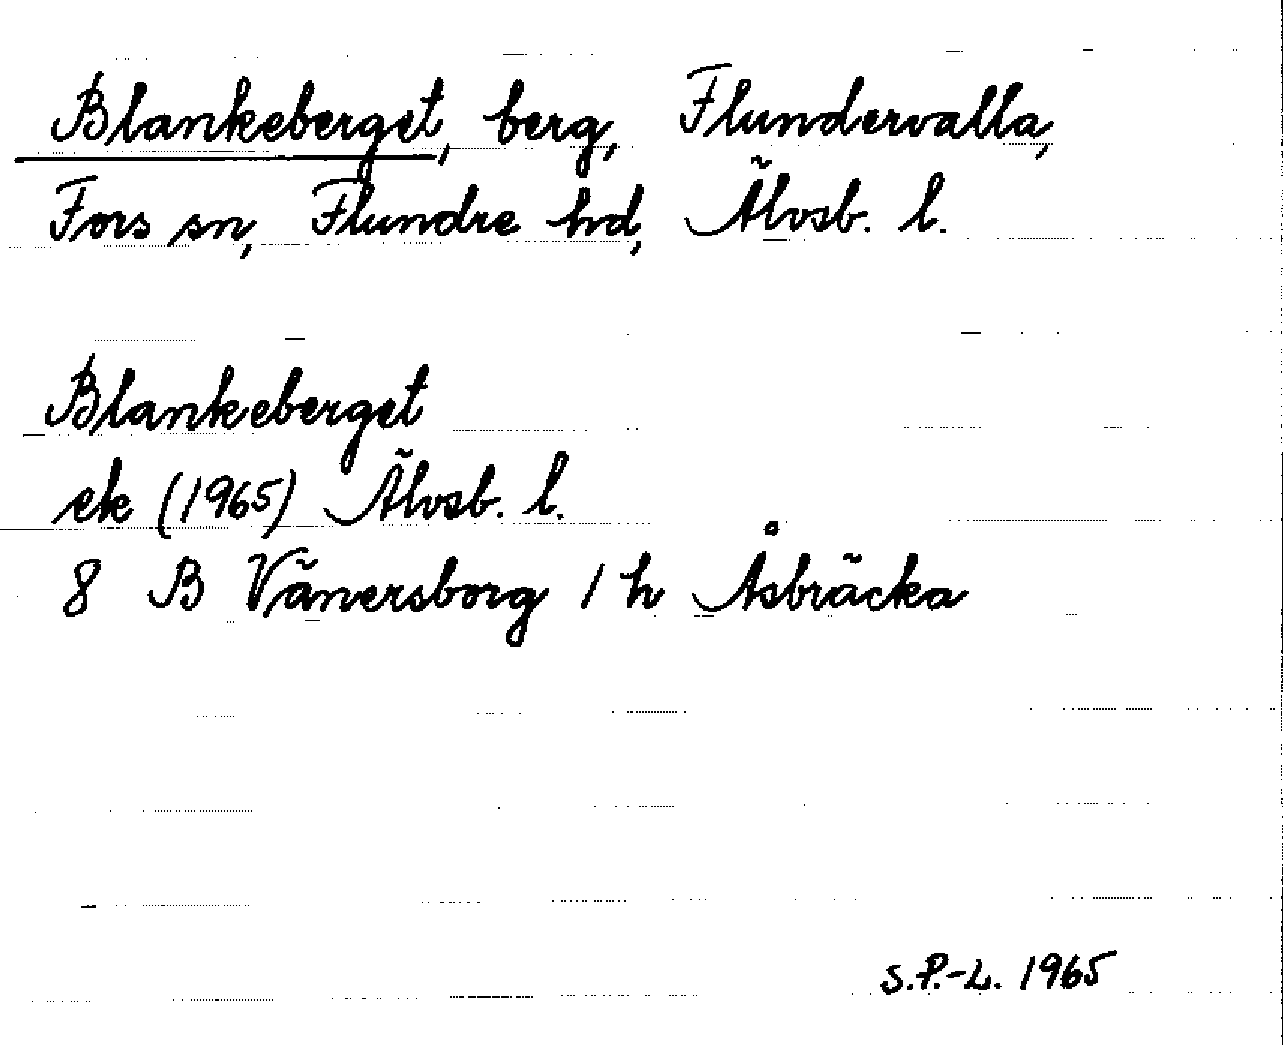 Blankeberget, berg, Flundervalla,
Fors sn, Flundre hd, Älvsb. l.
Blankeberget
ek (1965) Älvsb. l.
8 B Vänersborg 1 h Åsbräcka
S.P.-L. 1965